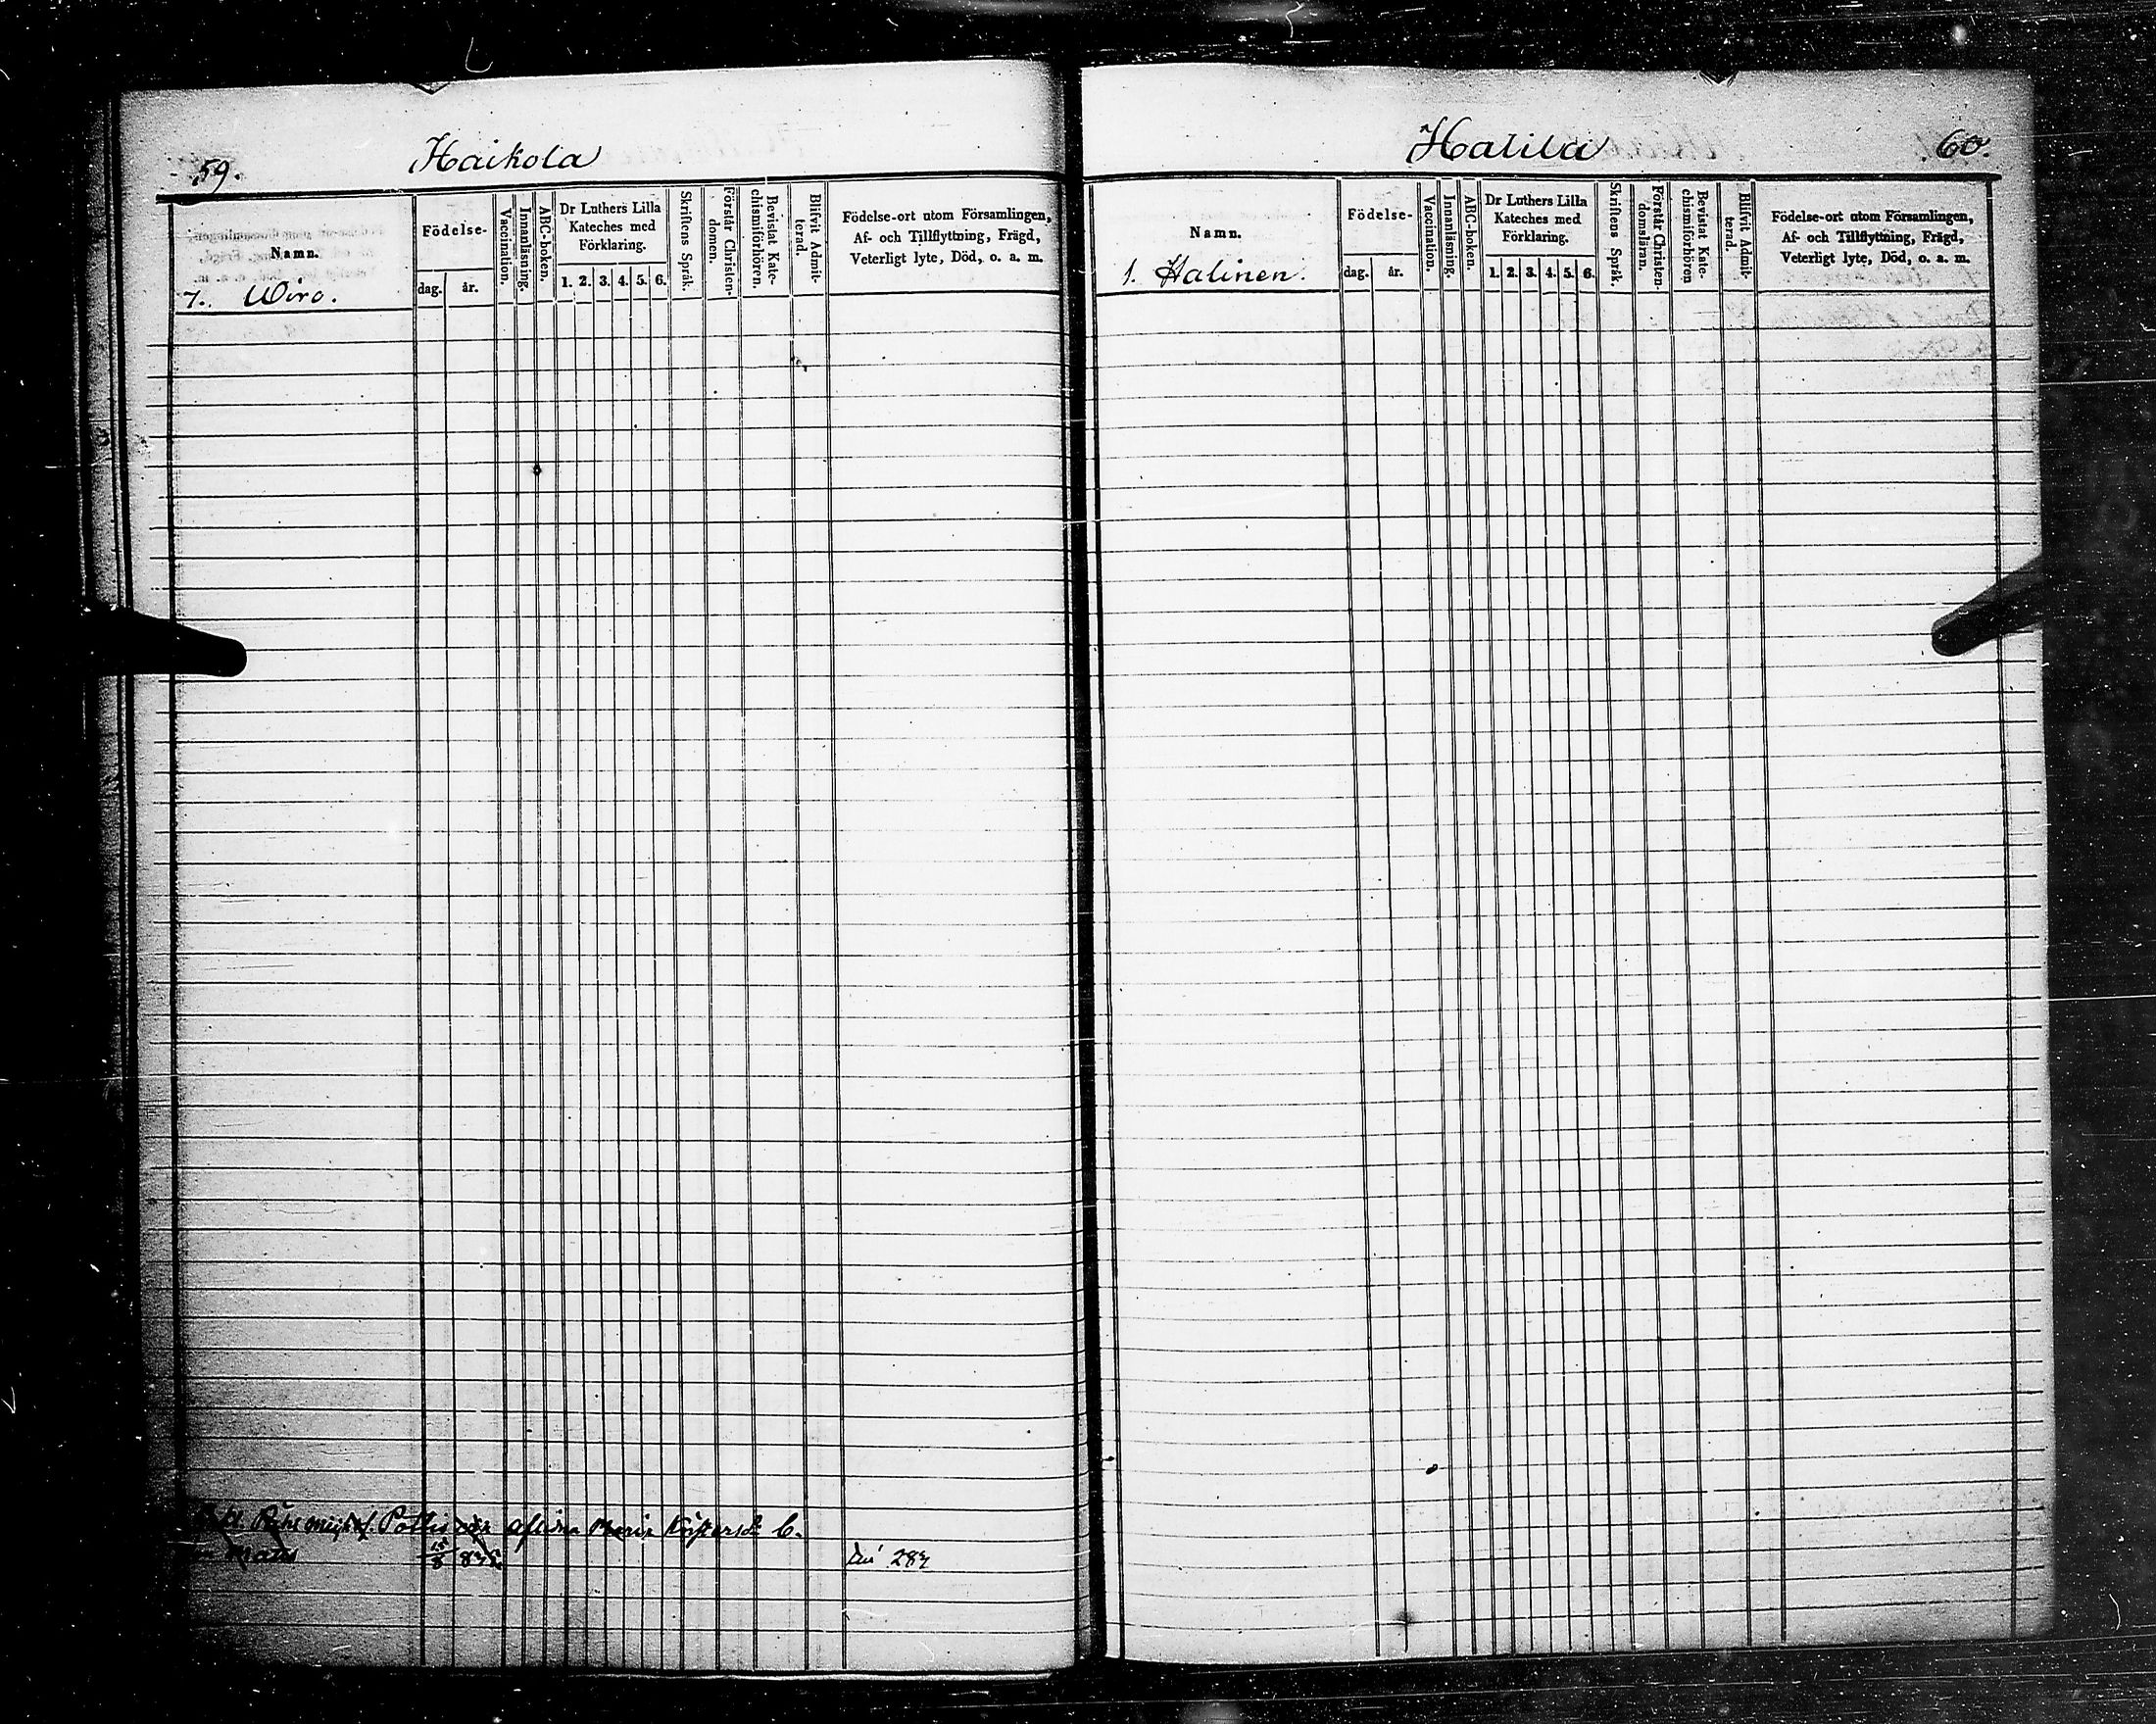 59.
Haikola
Namn.
Födelse-
dag.
år.
Vaccination.
Innanläsning.
ABC-boken.
Dr Luthers Lilla
Kateches med
Förklaring.
1. 2. 3. 4. 5. 6.
Skriftens Språk.
Förstår Christen-
domen.
Bevistat Kate-
chismiförhören.
Blifvit Admit-
terad.
Födelse-ort utom Församlingen,
Af- och Tillflyttning, Frägd,
Veterligt lyte, Död, o. a. m.
7. Wiro.
Maria
15/8
283
Halila
60.
Namn.
Födelse-
dag.
år.
Vaccination.
Innanläsning.
ABC-boken.
Dr Luthers Lilla
Kateches med
Förklaring.
1. 2. 3. 4. 5. 6.
Skriftens Språk.
Förstår Christen-
domsläran.
Bevistat Kate-
chismiförhören
Blifvit Admit-
terad.
Födelse-ort utom Församlingen,
Af- och Tillflyttning, Frägd,
Veterligt lyte, Död, o. a. m.
1. Halinen.